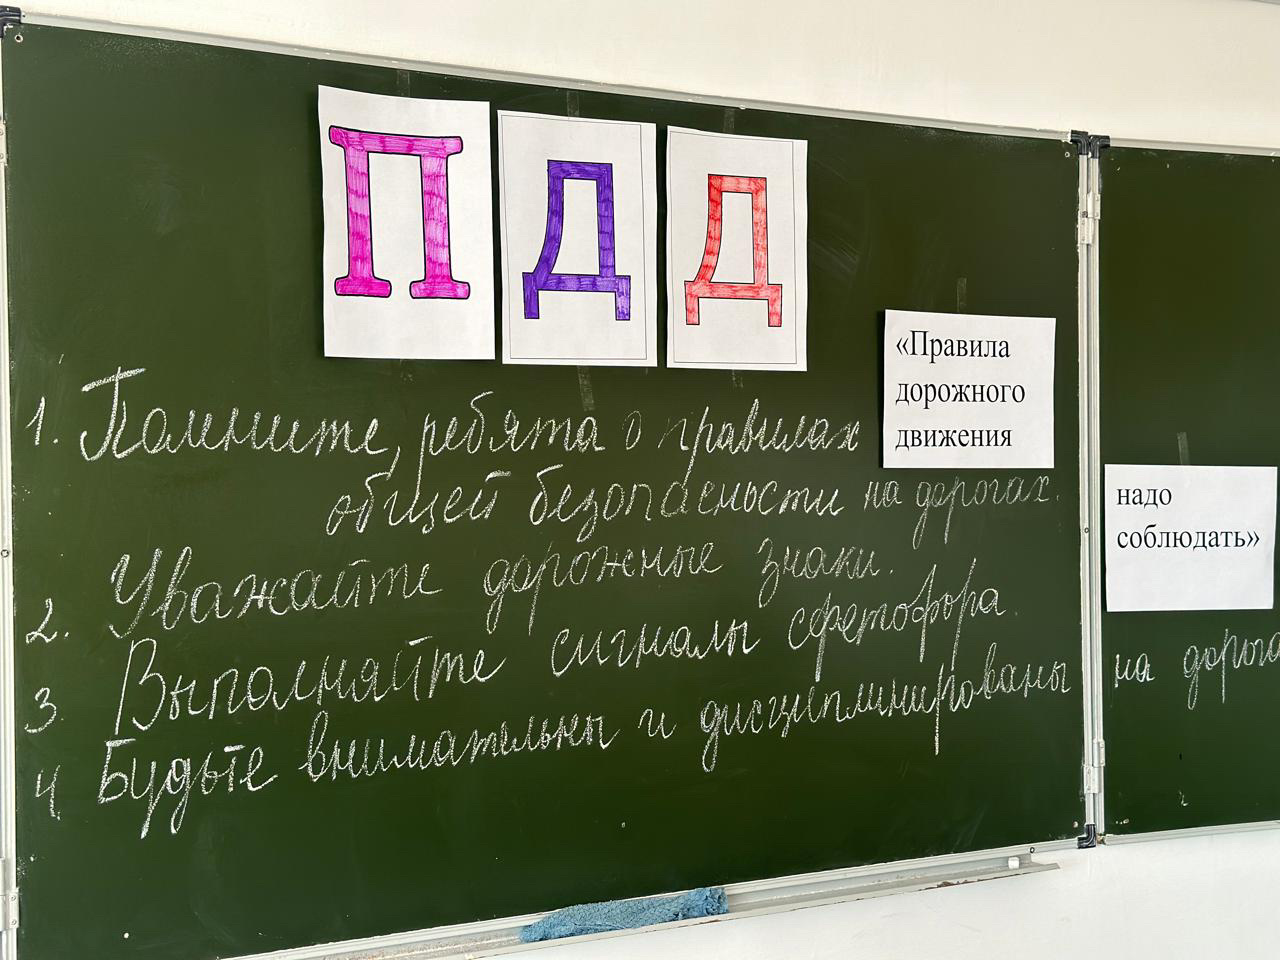 ПДД
«Правила
дорожного
движения
надо
соблюдать»
1. Помните, ребята о правилах
общей безопасности на дорогах.
2. Уважайте дорожные знаки.
3. Выполняйте сигналы сфетофора.
4. Будьте внимательны и дисциплинированы на дорога